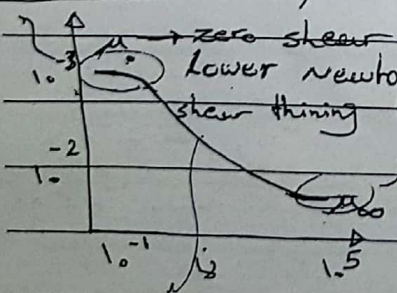 η μ° → zero shear
10⁻³ Lower Newto
shear thining
10⁻²
μ∞
10⁻¹ γ̇ 10⁵